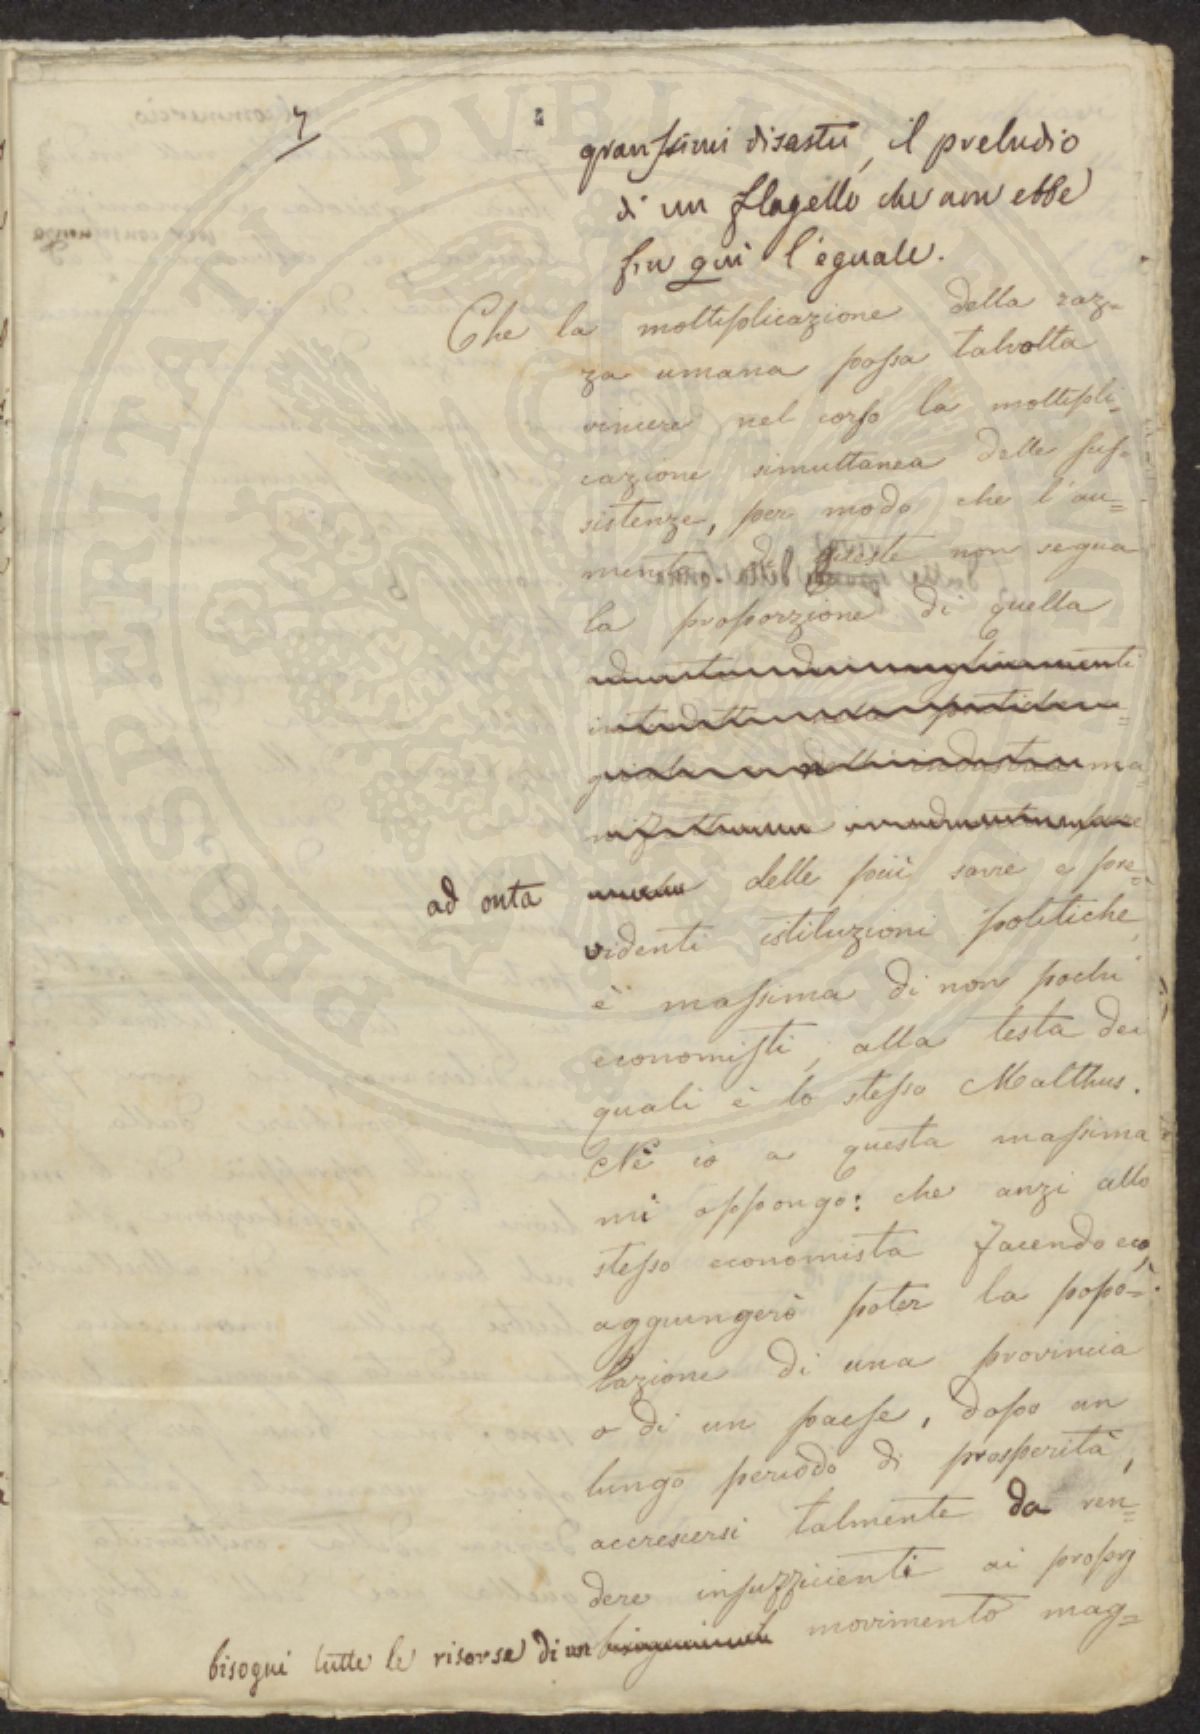 7
granssimi disastri, il preludio
di un flagello che non ebbe
fin quì l'eguale.
Che la moltiplicazione della raz=
za umana possa talvolta
vincere nel corso la moltipli-
cazione simultanea delle sus-
sistenze, per modo che l'au=
mento di queste non segua
la proporzione di quella
ad onta delle più savie e pre=
videnti istituzioni politiche,
è massima di non pochi
economisti, alla testa dei
quali è lo stesso Malthus.
Nè io a questa massima
mi oppongo: che anzi allo
stesso economista facendo eco,
aggiungerò poter la popo=
lazione di una provincia
o di un paese, dopo un
lungo periodo di prosperità,
accrescersi talmente da ren=
dere insufficienti ai proprj
bisogni tutte le risorse di un movimento mag=
PROSPERITATI PUBLICAE